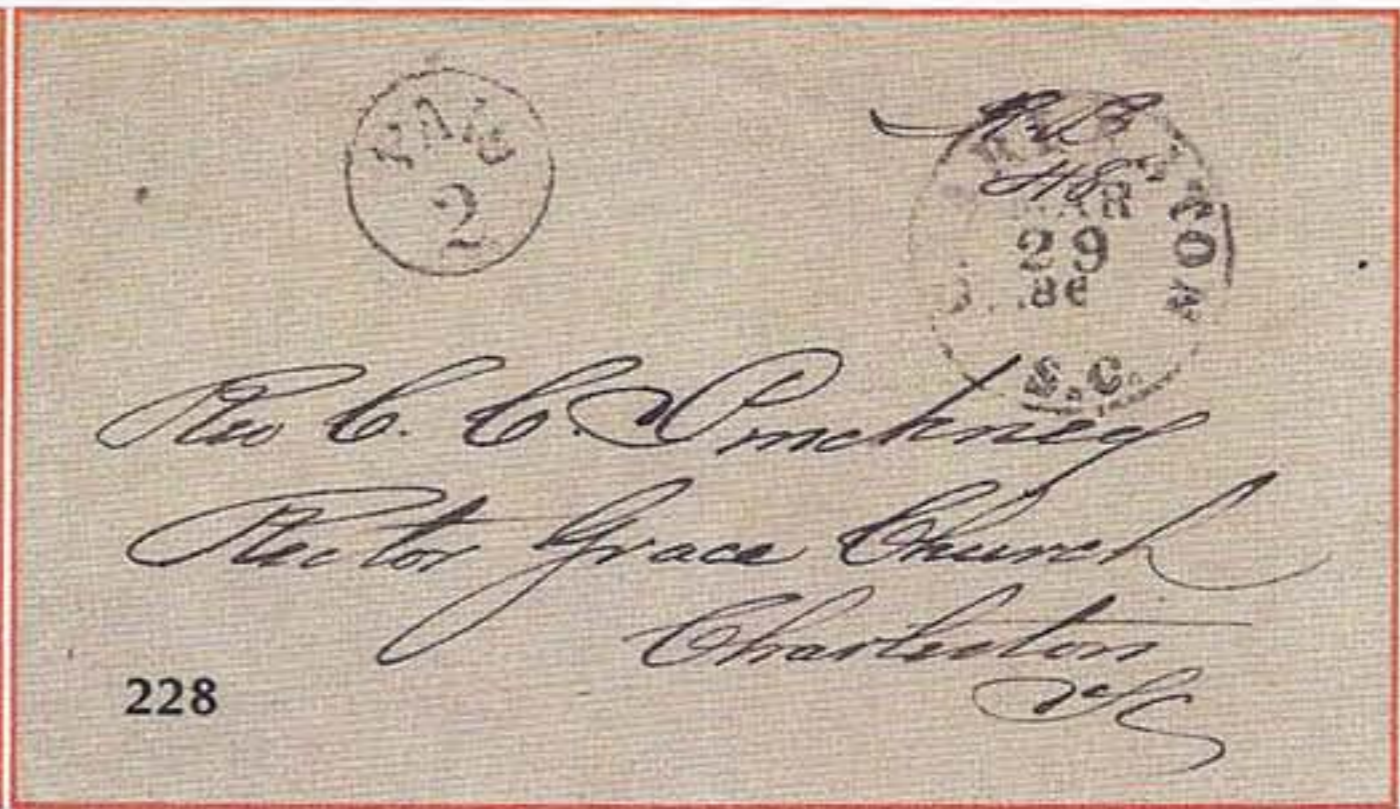 PAID
2
MAR
29
S.C.
Rev C. C. Pinckney
Rector Grace Church
Charleston
SC
228